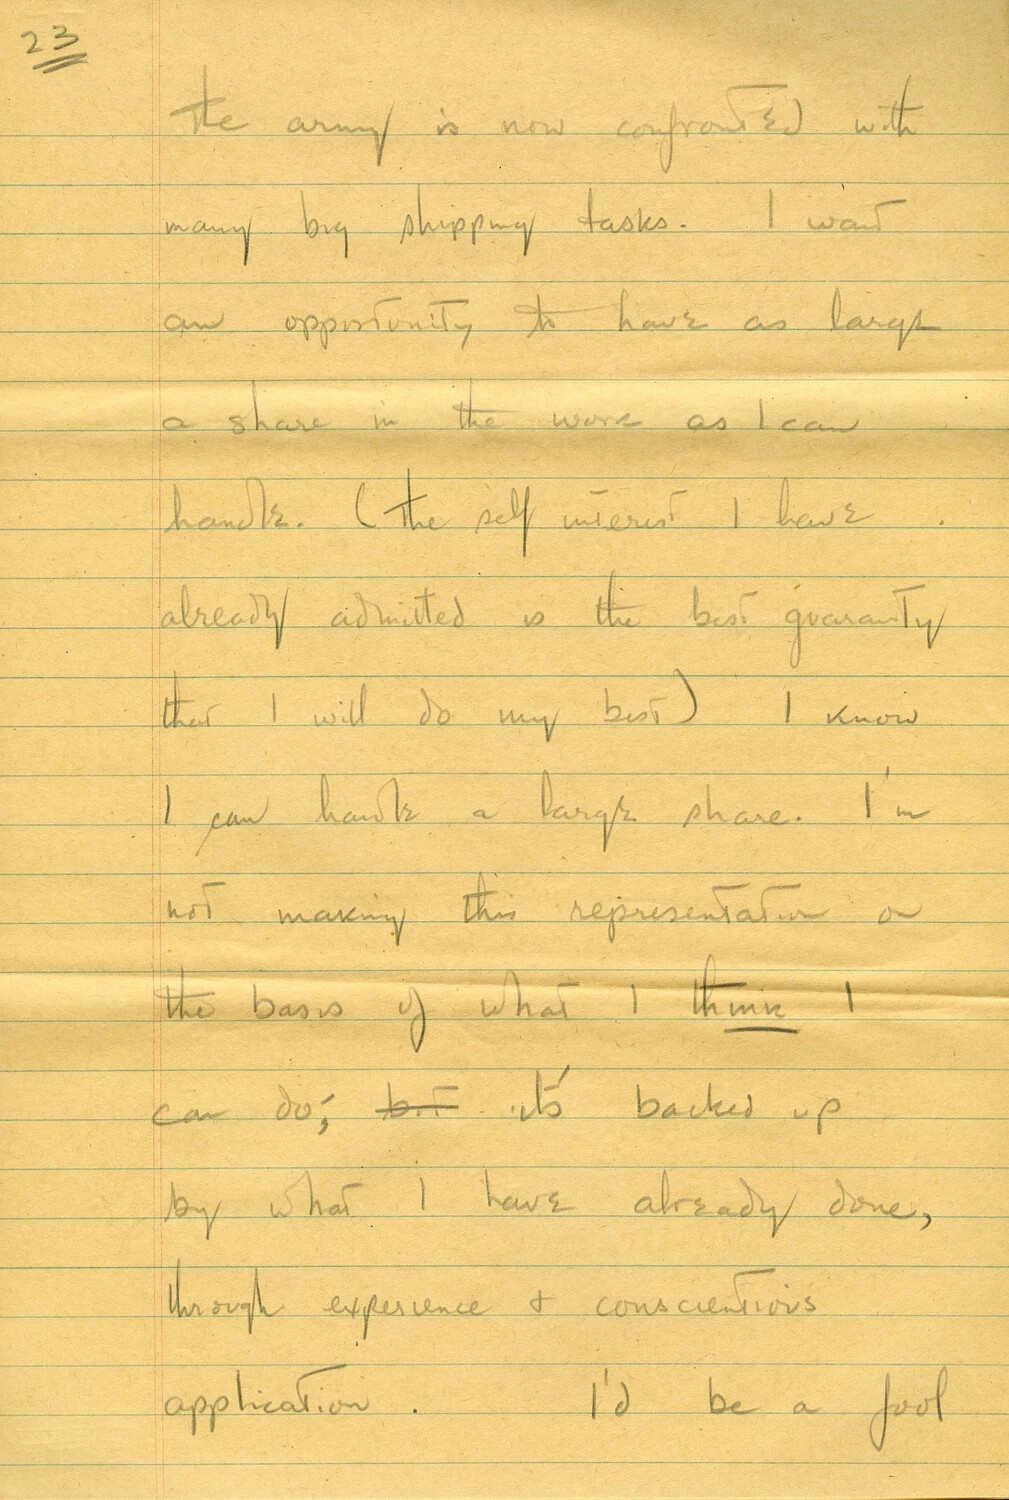 23
The army is now confronted with
many big shipping tasks. I want
an opportunity to have as large
a share in the work as I can
handle. (The self interest I have
already admitted is the best guaranty
that I will do my best) I know
I can handle a large share. I'm
not making this representation on
the basis of what I think I
can do; but it's backed up
by what I have already done,
through experience & conscientious
application. I'd be a fool